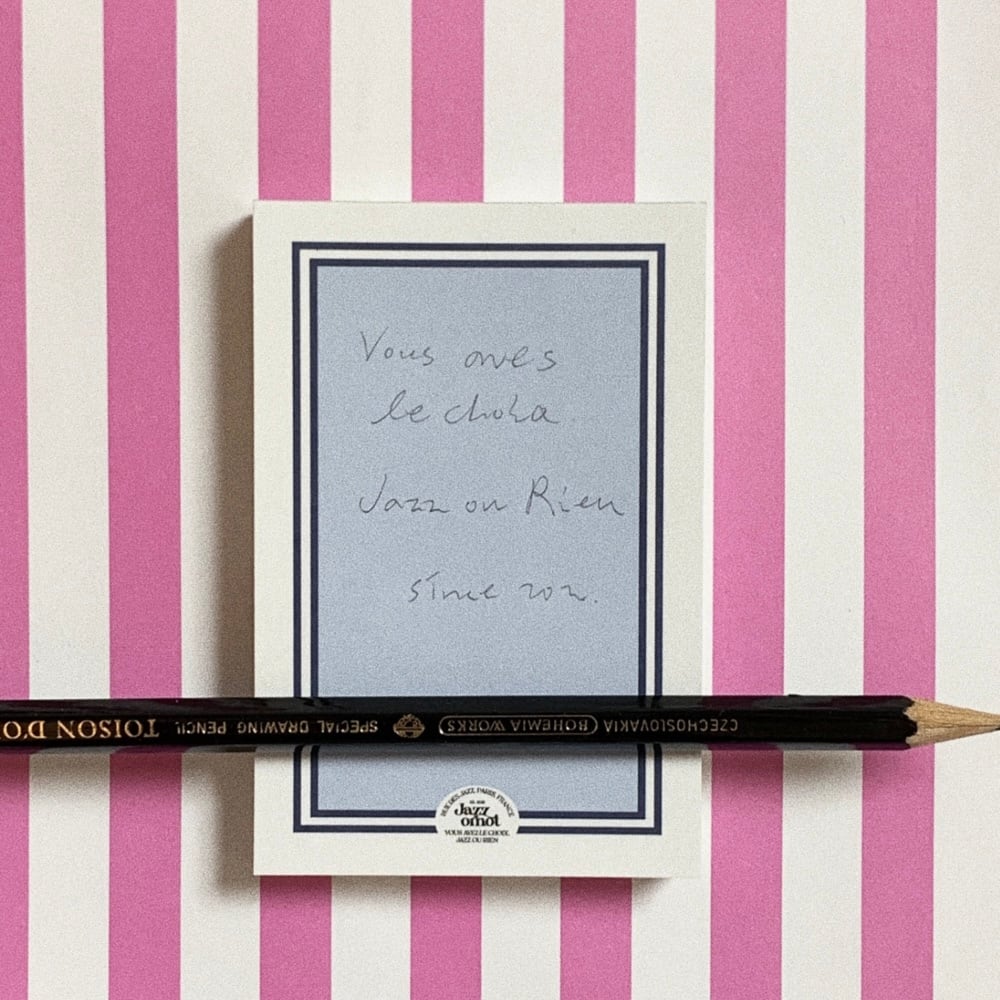 Vous aves
le choka.
Jazz ou Rien
since 202.
TOISON D'O
SPECIAL DRAWING PENCIL
BOHEMIA WORKS
CZECHOSLOVAKIA
RUE DES JAZZ, PARIS, FRANCE
Jazz
ornot
VOUS AVEZ LE CHOIX,
JAZZ OU RIEN